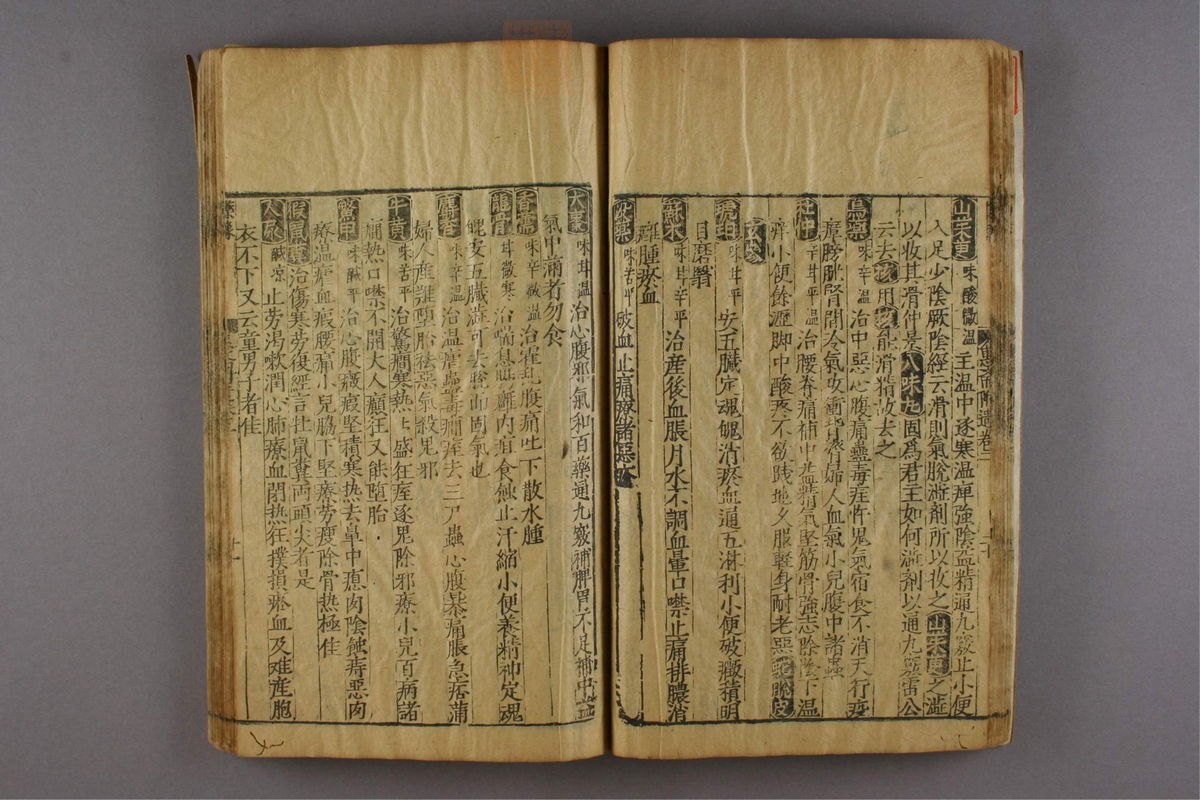 山茱萸 味酸微溫 主溫中逐寒溫痺強陰益精通九竅止小便
入足少陰厥陰經云滑則氣脫澁劑所以收之山茱萸之澁
以收其滑仲景八味丸囯爲君主如何澁劑以通九竅雷公
云去核用核能滑精故去之
烏藥 味辛溫 治中惡心腹痛蠱毒疰忤鬼氣宿食不消天行疫
瘴膀胱腎間冷氣攻衝背膂婦人血氣小兒腹中諸蟲
杜仲 辛甘平溫 治腰脊痛補中益精氣堅筋骨強志除陰下溫
痒小便餘瀝脚中酸疼不欲踐地久服輕身耐老惡蛇脫皮
玄參
琥珀 味甘平 安五臟定魂魄消瘀血通五淋利小便破癥積明
目磨翳
蘇木 味甘辛平 治產後血脹月水不調血暈口噤止痛排膿消
癰腫瘀血
沒藥 味苦平 破血止痛療諸惡瘡
大棗 味甘溫 治心腹邪氣和百藥通九竅補脾胃不足補中益
氣中滿者勿食
香薷 味辛微溫 治霍乱腹痛吐下散水腫
龍骨 甘微寒 治喘息 內疽食蝕止汗縮小便養精神定魂
魄安五臟澁可去脫而固氣也
麝香 味辛溫 治溫瘧蠱毒癇痓去三尸蟲心腹暴痛脹急痞滿
婦人產難墮胎袪惡氣殺鬼邪
牛黃 味苦平 治驚癇寒熱热盛狂痓逐鬼除邪療小兒百病諸
癇熱口噤不開大人癲狂又能墮胎
鱉甲 味鹹平 治心腹癥瘕堅積寒热去鼻中瘜肉陰蝕痔惡肉
療溫瘧血瘕腰痛小兒脇下堅療劳瘦除骨热極佳
猳鼠糞 治傷寒劳復經言牡鼠糞両頭尖者是
人尿 鹹凉 止劳渴嗽潤心肺療血閉热狂撲損瘀血及难產胞
衣不下又云童男子者佳